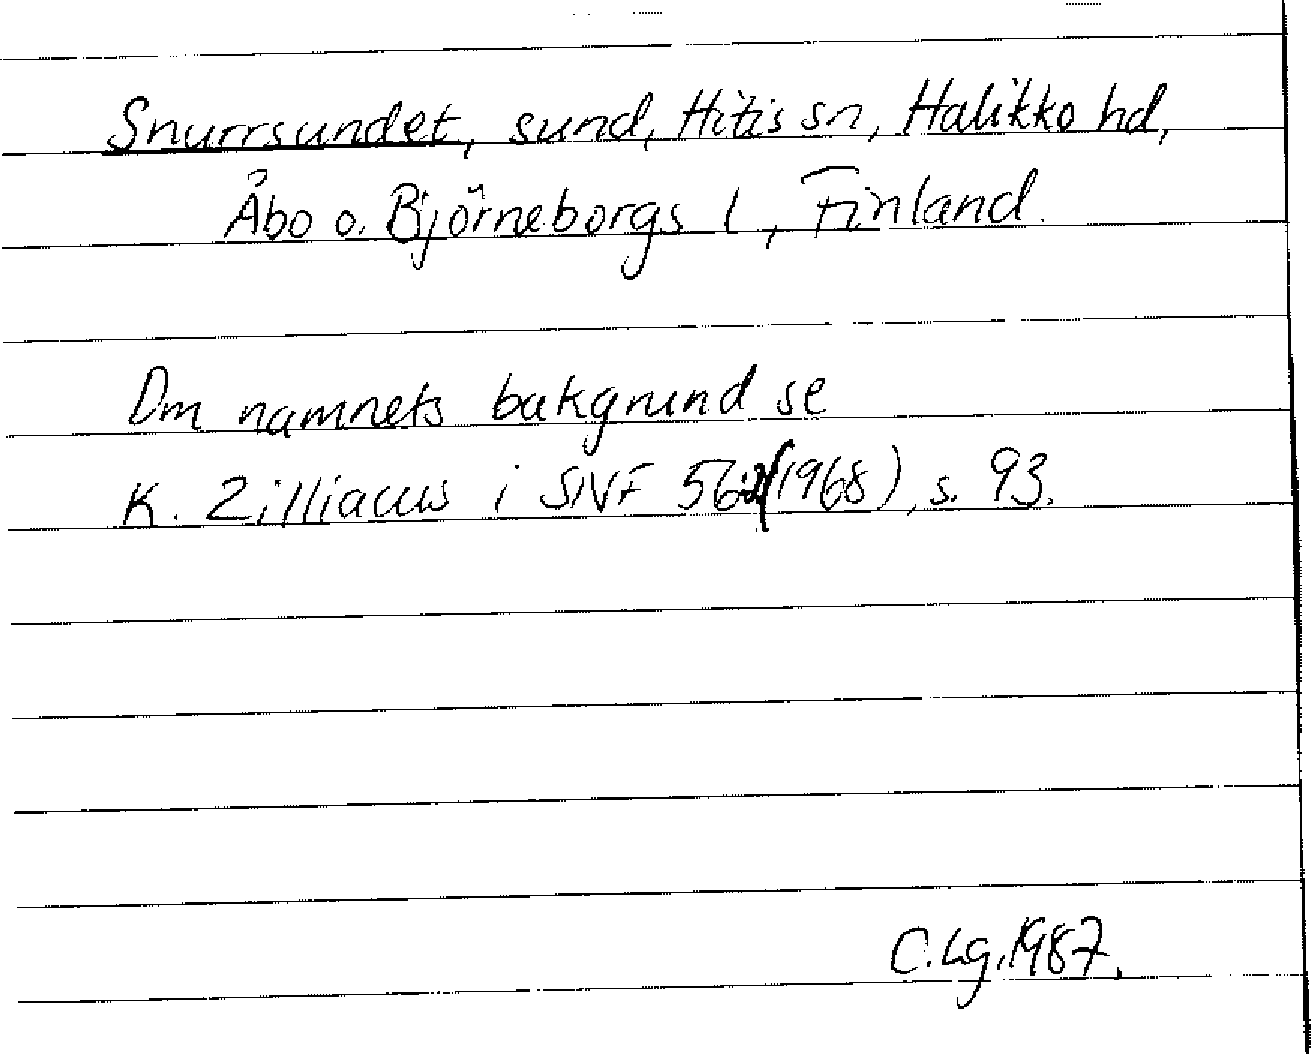 Snurrsundet, sund, Hitis sn, Halikko hd,
Åbo o. Björneborgs l, Finland.
Om namnets bakgrund se
K. Zilliacus i SNF 56:2 (1968), s. 93.
C. Lg. 1987.